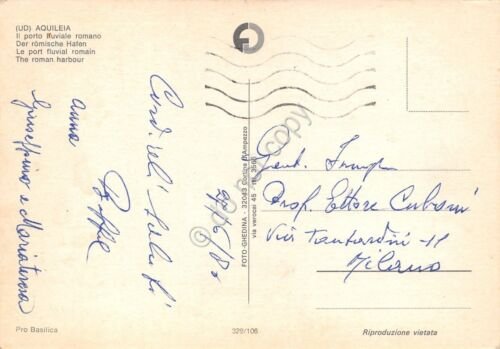 (UD) AQUILEIA
Il porto fluviale romano
Der römische Hafen
Le port fluvial romain
The roman harbour
Cordiali Saluti
Anna
Giuseppino e Mariateresa
FOTO-GHEDINA - 32043 Cortina d'Ampezzo
via verocai 45 - Tel.
Gent. Famiglia
Prof. Ettore Cubani
Via Tantardini 11
Milano
Pro Basilica
329/106
Riproduzione vietata